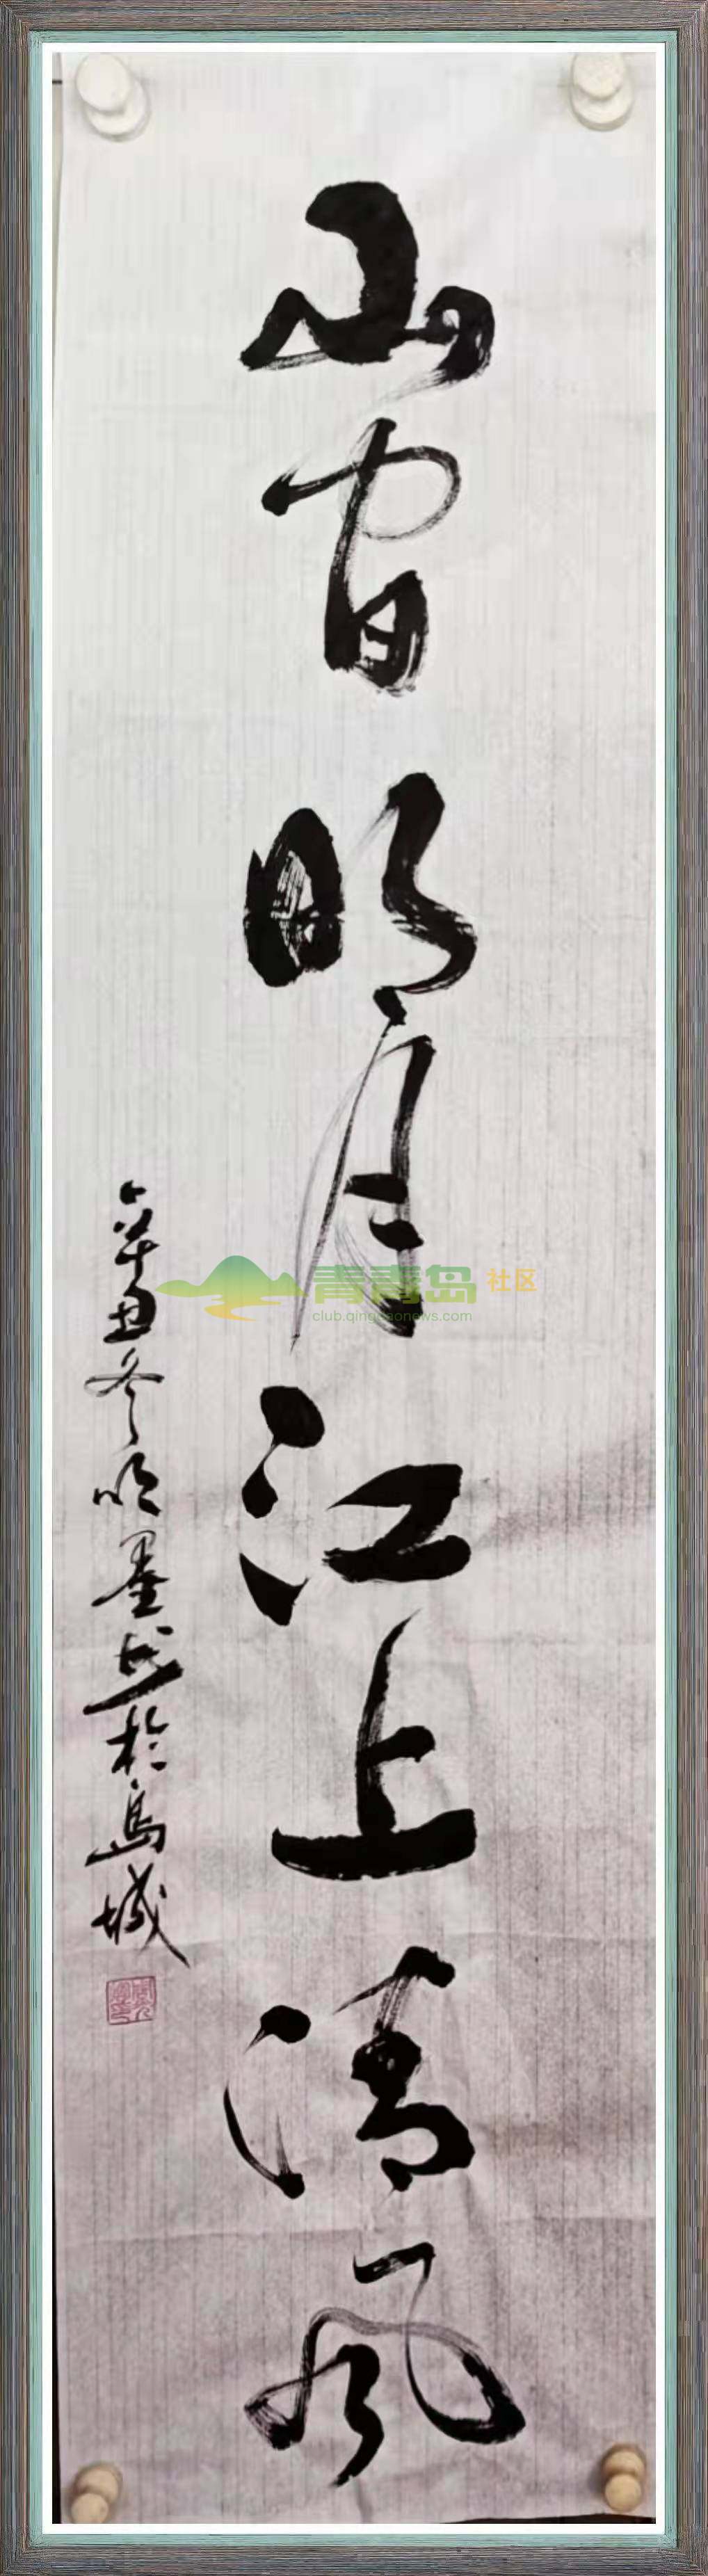 山間明月江上清風
辛丑冬明墨书於島城
青青岛社区
club.qingdaonews.com